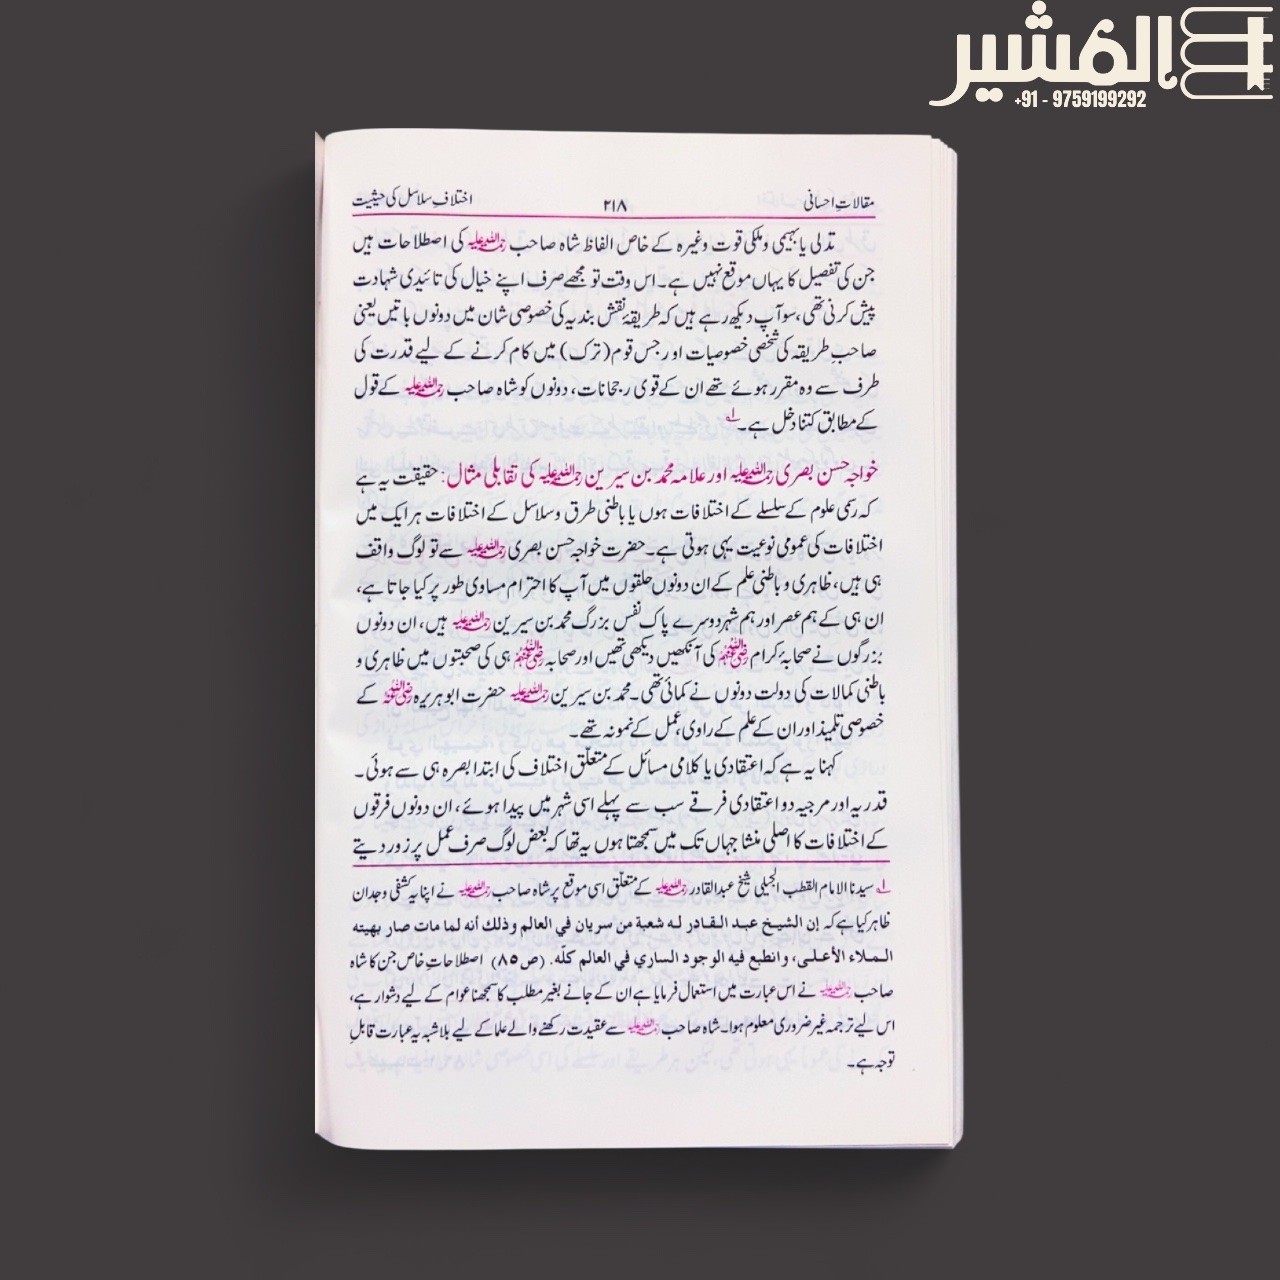 المشیر
+91 - 9759199292
مقالاتِ احسانی ۲۱۸ اختلافِ سلاسل کی حیثیت
تدلی یا بہیمی وملکی قوت وغیرہ کے خاص الفاظ شاہ صاحب رحمۃ اللہ علیہ کی اصطلاحات ہیں
جن کی تفصیل کا یہاں موقع نہیں ہے۔ اس وقت تو مجھے صرف اپنے خیال کی تائیدی شہادت
پیش کرنی تھی، سو آپ دیکھ رہے ہیں کہ طریقۂ نقش بندیہ کی خصوصی شان میں دونوں باتیں یعنی
صاحبِ طریقہ کی شخصی خصوصیات اور جس قوم (ترک) میں کام کرنے کے لیے قدرت کی
طرف سے وہ مقرر ہوئے تھے ان کے قوی رجحانات، دونوں کو شاہ صاحب رحمۃ اللہ علیہ کے قول
کے مطابق کتنا دخل ہے۔ ۱؎
خواجہ حسن بصری رحمۃ اللہ علیہ اور علامہ محمد بن سیرین رحمۃ اللہ علیہ کی تقابلی مثال: حقیقت یہ ہے
کہ رسمی علوم کے سلسلے کے اختلافات ہوں یا باطنی طرق وسلاسل کے اختلافات ہر ایک میں
اختلافات کی عمومی نوعیت یہی ہوتی ہے۔ حضرت خواجہ حسن بصری رحمۃ اللہ علیہ سے تو لوگ واقف
ہی ہیں، ظاہری و باطنی علم کے ان دونوں حلقوں میں آپ کا احترام مساوی طور پر کیا جاتا ہے،
ان ہی کے ہم عصر اور ہم شہر دوسرے پاک نفس بزرگ محمد بن سیرین رحمۃ اللہ علیہ ہیں، ان دونوں
بزرگوں نے صحابۂ کرام رضی اللہ عنہم کی آنکھیں دیکھی تھیں اور صحابہ رضی اللہ عنہم ہی کی صحبتوں میں ظاہری و
باطنی کمالات کی دولت دونوں نے کمائی تھی۔ محمد بن سیرین رحمۃ اللہ علیہ حضرت ابو ہریرہ رضی اللہ عنہ کے
خصوصی تلمیذ اور ان کے علم کے راوی، عمل کے نمونہ تھے۔
کہنا یہ ہے کہ اعتقادی یا کلامی مسائل کے متعلق اختلاف کی ابتدا بصرہ ہی سے ہوئی۔
قدریہ اور مرجیہ دو اعتقادی فرقے سب سے پہلے اسی شہر میں پیدا ہوئے، ان دونوں فرقوں
کے اختلافات کا اصلی منشا جہاں تک میں سمجھتا ہوں یہ تھا کہ بعض لوگ صرف عمل پر زور دیتے
۱؎ سیدنا الامام القطب الجیلی شیخ عبدالقادر رحمۃ اللہ علیہ کے متعلق اسی موقع پر شاہ صاحب رحمۃ اللہ علیہ نے اپنا یہ کشفی وجدان
ظاہر کیا ہے کہ إن الشيخ عبد القادر له شعبة من سريان في العالم وذلك أنه لما مات صار بهيئة
الملاء الأعلى، وانطبع فيه الوجود الساري في العالم كلّه. (ص۸۵) اصطلاحاتِ خاص جن کا شاہ
صاحب رحمۃ اللہ علیہ نے اس عبارت میں استعمال فرمایا ہے ان کے جانے بغیر مطلب کا سمجھنا عوام کے لیے دشوار ہے،
اس لیے ترجمہ غیر ضروری معلوم ہوا۔ شاہ صاحب رحمۃ اللہ علیہ سے عقیدت رکھنے والے علما کے لیے بلاشبہ یہ عبارت قابلِ
توجہ ہے۔